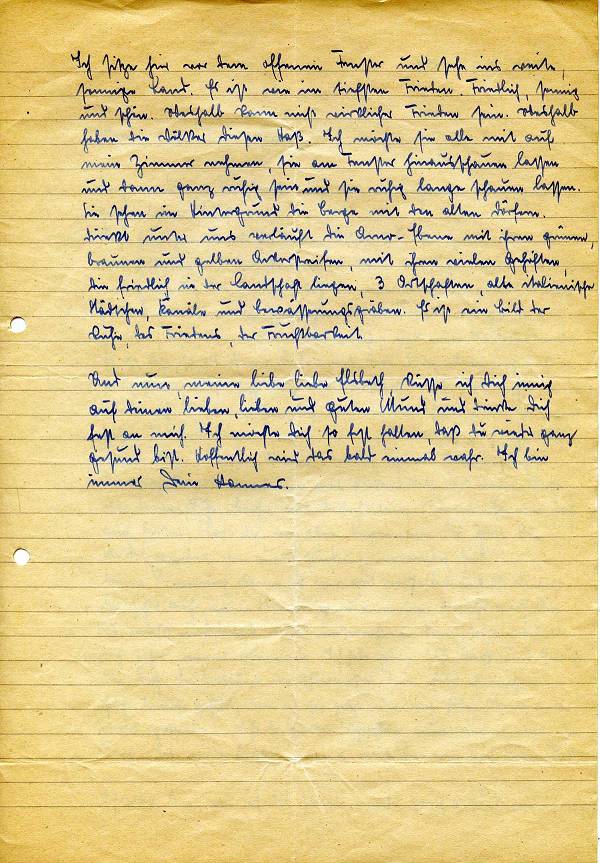 Ich sitze hier vor dem offenen Fenster und sehe ins weite,
sonnige Land. Es ist wie im tiefsten Frieden. Friedlich, sonnig
und schön. Weshalb kann nicht wirklicher Frieden sein. Weshalb
haben die Völker diesen Haß. Ich möchte sie alle mit auf
mein Zimmer nehmen, sie am Fenster hinausschauen lassen
und dann ganz ruhig sein und sie ruhig lange schauen lassen.
Sie sehen im Hintergrund die Berge mit den alten Dörfern.
Direkt unter uns verläuft die Ebene mit ihren grünen,
braunen und gelben Ackerstreifen, mit ihren vielen Gehöften,
die friedlich in der Landschaft liegen, 3 Ortschaften, alte italienische
Städtchen, Kanäle und Bewässerungsgräben. Es ist ein Bild der
Ruhe, des Friedens, der Fruchtbarkeit.
Und nun, meine liebe, liebe Elsbeth küsse ich Dich innig
auf Deinen lieben, lieben und guten Mund und drücke Dich
fest an mich. Ich möchte Dich so fest halten, daß Du wieder ganz
gesund bist. Hoffentlich wird das bald einmal wahr. Ich bin
immer Dein Hannes.